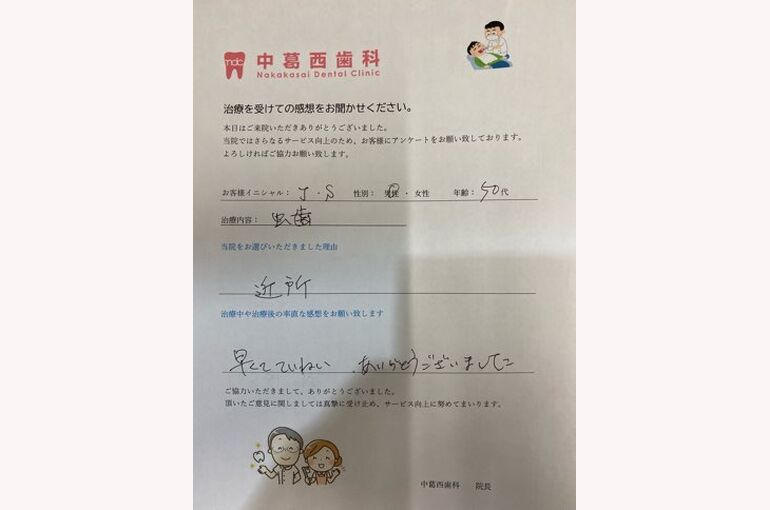 mdc 中葛西歯科
Nakakasai Dental Clinic
治療を受けての感想をお聞かせください。
本日はご来院いただきありがとうございました。
当院ではさらなるサービス向上のため、お客様にアンケートをお願い致しております。
よろしければご協力お願い致します。
お客様イニシャル： J・S 性別： 男性 ・ 女性 年齢： 50代
治療内容： 虫歯
当院をお選びいただきました理由
近所
治療中や治療後の率直な感想をお願い致します
早くてていねい ありがとうございました
ご協力いただきまして、ありがとうございました。
頂いたご意見に関しましては真摯に受け止め、サービス向上に努めてまいります。
中葛西歯科 院長